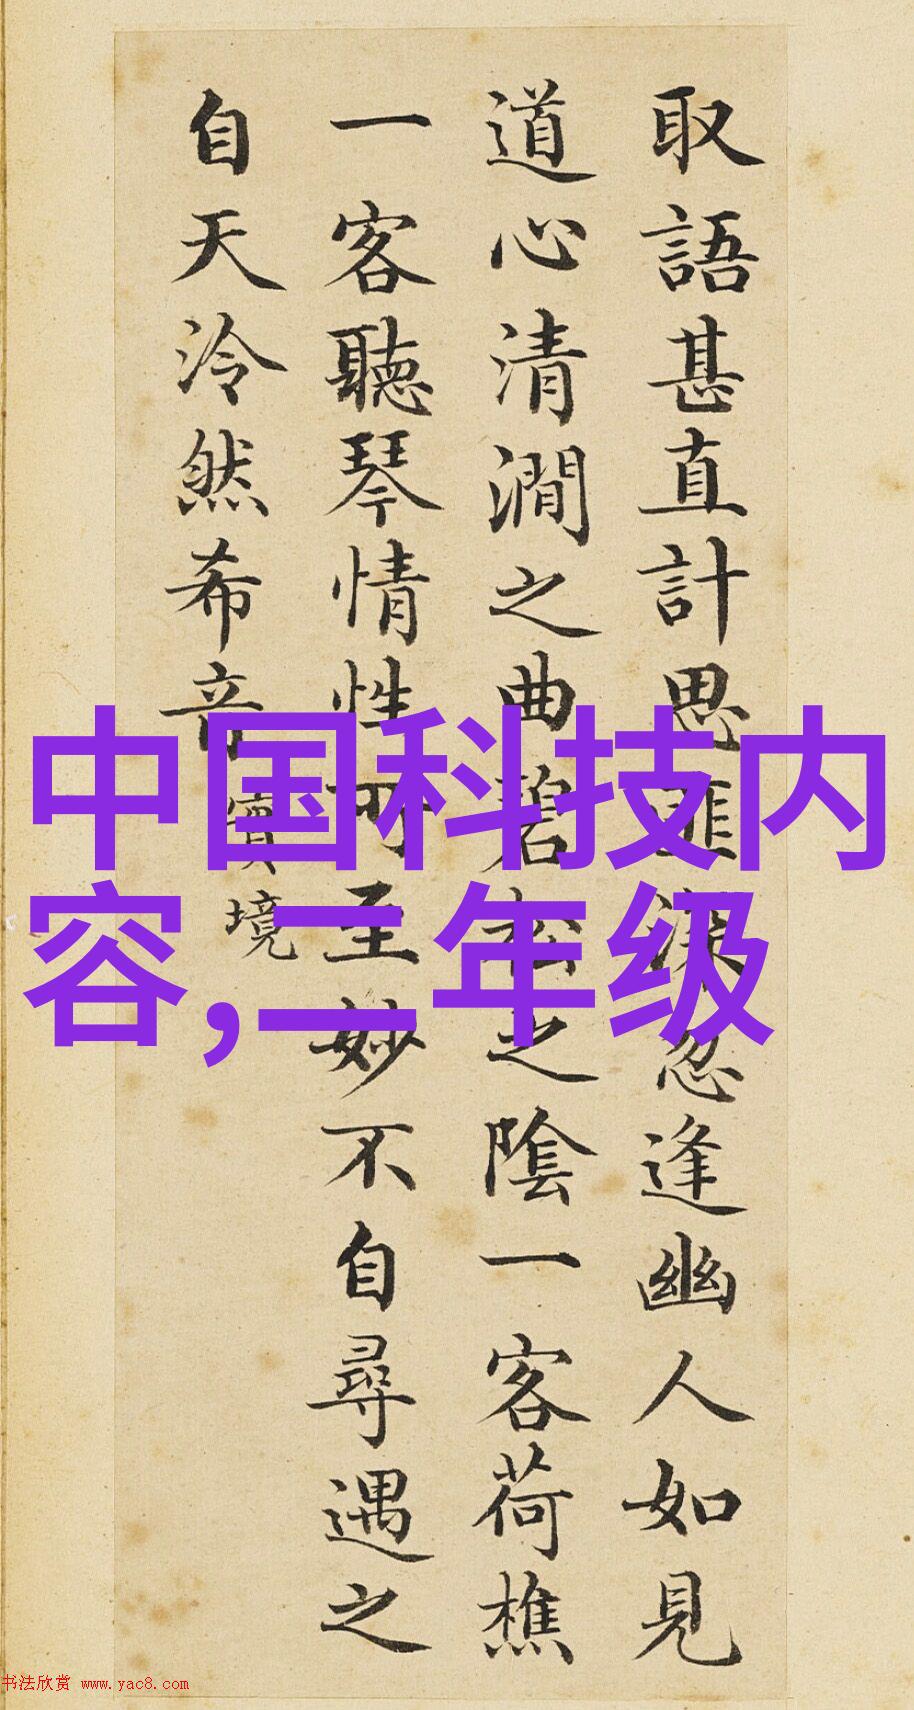 取語甚直計思匪深忽逢幽人如見
道心清澗之曲碧松之陰一客荷樵
一客聽琴情性所至妙不自尋遇之
自天泠然希音
實境
中国科技内
容,二年级
书法欣赏 www.yac8.com